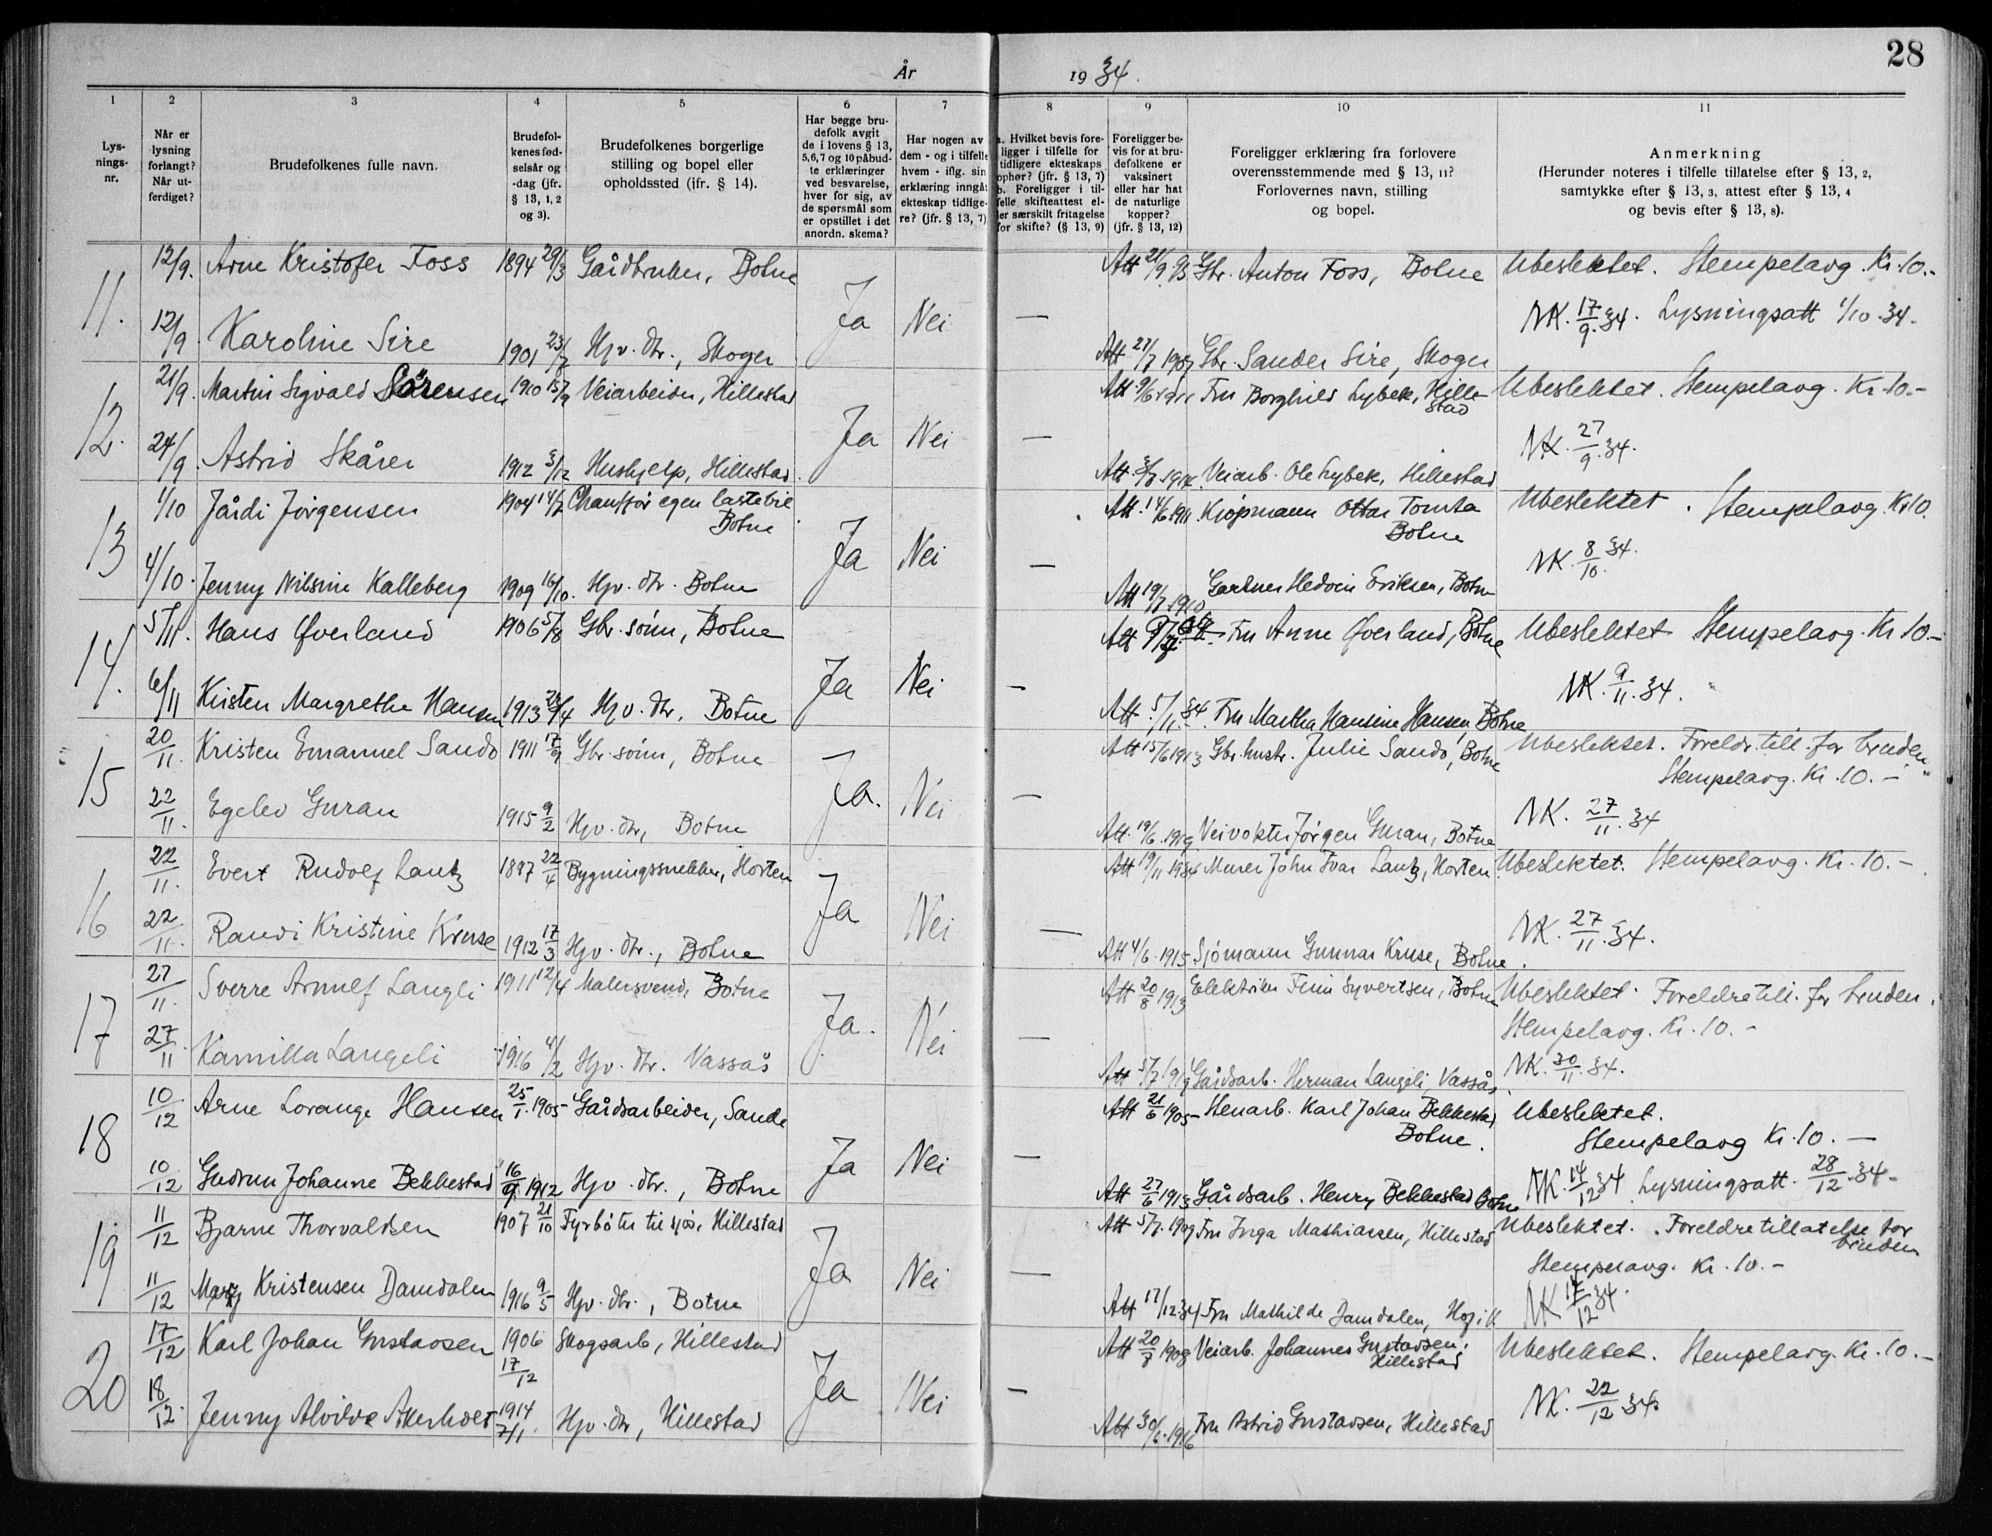 28
År 1934.
1 2 3 4 5 6 7 8 9 10 11
Lysningsnr.
Når er lysning forlangt? Når utferdiget?
Brudefolkenes fulle navn.
Brudefolkenes fødselsår og -dag (jfr. § 13, 1, 2 og 3).
Brudefolkenes borgerlige stilling og bopel eller opholdssted (jfr. § 14).
Har begge brudefolk avgit de i lovens § 13, 5,6,7 og 10 påbudte erklæringer ved besvarelse, hver for sig, av de spørsmål som er opstillet i det anordn. skema?
Har nogen av dem - og i tilfelle hvem - iflg. sin erklæring inngått ekteskap tidligere? (jfr. § 13, 7)
a. Hvilket bevis foreligger i tilfelle for tidligere ekteskaps ophør? (jfr. § 13, 7) b. Foreligger i tilfelle skifteattest eller særskilt fritagelse for skifte? (§ 13, 9)
Foreligger bevis for at brudefolkene er vaksinert eller har hat de naturlige kopper? (jfr. § 13, 12)
Foreligger erklæring fra forlovere overensstemmende med § 13, 11? Forlovernes navn, stilling og bopel.
Anmerkning (Herunder noteres i tilfelle tillatelse efter § 13, 2, samtykke efter § 13, 3, attest efter § 13, 4 og bevis efter § 13, 8).
12/9. Arne Kristofer Foss 1894 29/3 Gårdbruker, Botne Gbr. Anton Foss, Botne Ubeslektet. Stempelavg. Kr. 10.-
11. Ja Nei — NK. 17/9.34. Lysningsatt 1/10.34.
12/9 Karoline Sire 1901 23/7 Hjv. dtr., Skoger Att 21/7 1907 Gbr. Sander Sire, Skoger
21/9. Martin Sigvald Sörensen 1910 15/9 Veiarbeider, Hillestad Fru Borghild Lybek, Hillestad Ubeslektet. Stempelavg. Kr 10.-
12. Ja Nei — NK. 27/9.34.
24/9 Astrid Skårer 1912 3/12 Hushjelp, Hillestad. Veiarb. Ole Lybek, Hillestad
1/10 Jårdi Jørgensen 1904 14/7 Chauffør egen lastebil Botne Att. 14/6 1911. Kjøpmann Ottar Tomta Botne Ubeslektet. Stempelavg. Kr 10.
13 Ja Nei — NK. 8/10.34.
4/10. Jenny Nilsine Kalleberg 1909 16/10. Hjv. dtr. Botne Att 19/7 1910 Gartner Hedvin Eriksen, Botne
5/11. Hans Øverland 1906 5/8 Gbr. sönn, Botne Att Fru Anne Øverland, Botne Ubeslektet Stempelavg. Kr 10.-
14. Ja Nei — NK. 9/11.34.
6/11 Kirsten Margrethe Hansen 1913 Hjv. dtr. Botne Att 5/11.34 Fru Martha Hansine Hansen, Botne
20/11. Kristen Emanuel Sando 1911 17/9 Gbr. sönn, Botne Att 15/6 1913 Gbr. hustr. Julie Sando, Botne Ubeslektet. Foreldr. till. for bruden
Stempelavg. Kr. 10.-
15 Ja. Nei — NK. 27/11.34
22/11. Egelev Guran 1915 9/2 Hjv. dtr, Botne Att. 19/6.1919 Veivokter Jørgen Guran, Botne
22/11. Evert Rudolf Lantz 1897 22/4 Bygningssnekker, Horten Att 19/11 1934 Murer John Ivar Lantz, Horten Ubeslektet. Stempelavg. Kr. 10.-
16 Ja Nei — NK. 27/11.34.
22/11. Randi Kristine Kruse 1912 17/3 Hjv. dtr., Botne Att 4/6 1915 Sjömann Gunnar Kruse, Botne
27/11. Sverre Arnulf Langli 1911 12/4 Malersvend, Botne Att 20/8 1913 Elektriker Finn Syvertsen, Botne Ubeslektet. Foreldre till. for bruden.
Stempelavg. Kr. 10.-
17 Ja. Nei — NK. 30/11.34.
27/11 Kamilla Langeli 1916 4/2 Hjv. dtr. Vassås Att 5/7 1919 Gårdsarb. Herman Langeli, Vassås
10/12 Arne Lorange Hansen 25/1.1905 Gårdsarbeider, Sande Att 21/6 1905 Stenarb. Karl Johan Bekkestad Botne. Ubeslektet.
Stempelavg Kr. 10.—
18 Ja Nei — NK. 14/12 34 Lysningsatt. 28/12.34.
10/12 Gudrun Johanne Bekkestad 16/9 1912 Hjv. dtr., Botne Att 27/6 1913 Gårdsarb. Henry Bekkestad Botne
11/12 Bjarne Thorvaldsen 1907 21/10 Fyrbøter til sjøs, Hillestad Att 5/7.1909 Fru Inga Mathiassen, Hillestad Ubeslektet. Foreldretillatelse for bruden
Stempelavg. Kr. 10.-
19 Ja Nei — NK 14/12 34.
11/12 Mary Kristensen Damdalen 1916 9/5 Hjv. dtr., Botne Att 17/12.34 Fru Mathilde Damdalen,
17/12 Karl Johan Gustavsen 1906 17/12 Skogsarb, Hillestad Att 20/8 1908 Veiarb. Johannes Gustavsen. Hillestad Ubeslektet. Stempelavg. Kr. 10.-
20 Ja Nei — NK. 22/12 34.
18/12. Jenny Alvilde Akerholt 1914 7/1. Hjv. dtr, Hillestad Att 30/6.1916 Fru Astrid Gustavsen, Hillestad